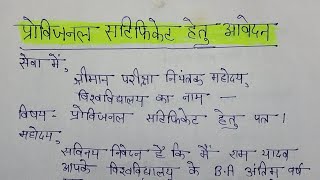 प्रोविजनल सर्टिफिकेट हेतु आवेदन
सेवा में,
श्रीमान परीक्षा नियंत्रक महोदय,
विश्वविद्यालय का नाम —
विषयः प्रोविजनल सर्टिफिकेट हेतु पत्र।
महोदय,
सविनय निवेदन है कि मैं राम यादव
आपके विश्वविद्यालय के B.A अंतिम वर्ष